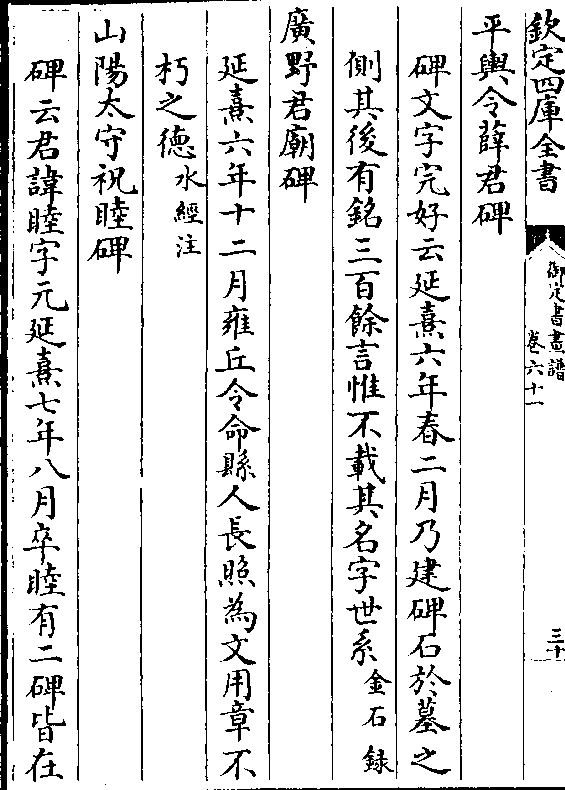 欽定四庫全書
御定書畫譜
卷六十一
三十
平輿令薛君碑
碑文字完好云延熹六年春二月乃建碑石於墓之
側其後有銘三百餘言惟不載其名字世系金石錄
廣野君廟碑
延熹六年十二月雍丘令命縣人長照為文用章不
朽之德水經注
山陽太守祝睦碑
碑云君諱睦字元延熹七年八月卒睦有二碑皆在